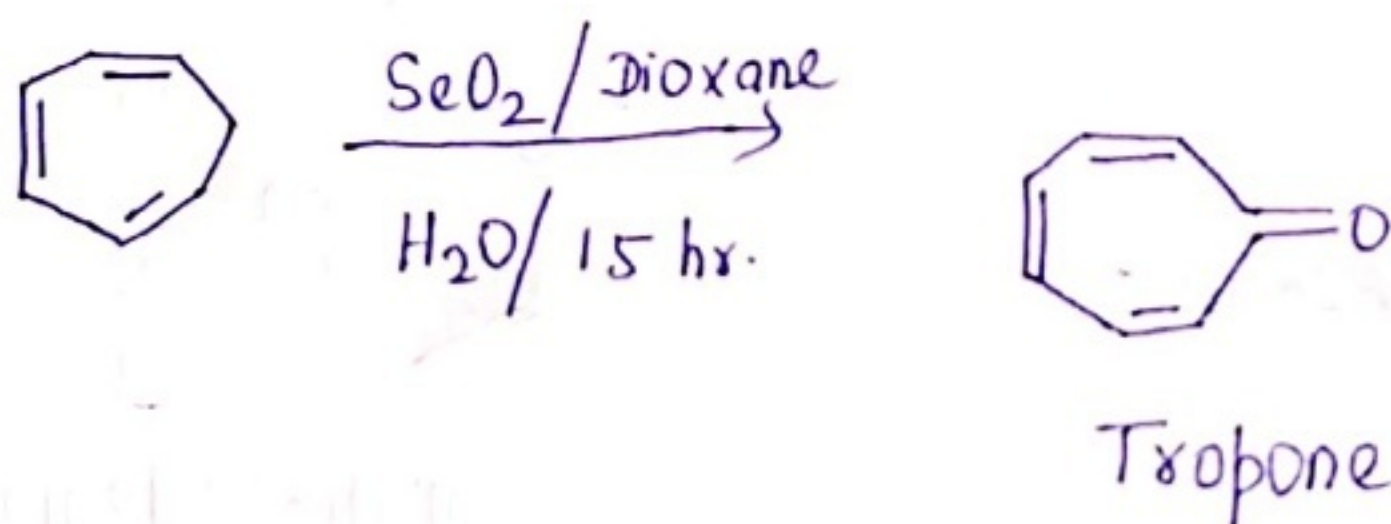 SeO₂/Dioxane
H₂O/15 hr.
O
Tropone